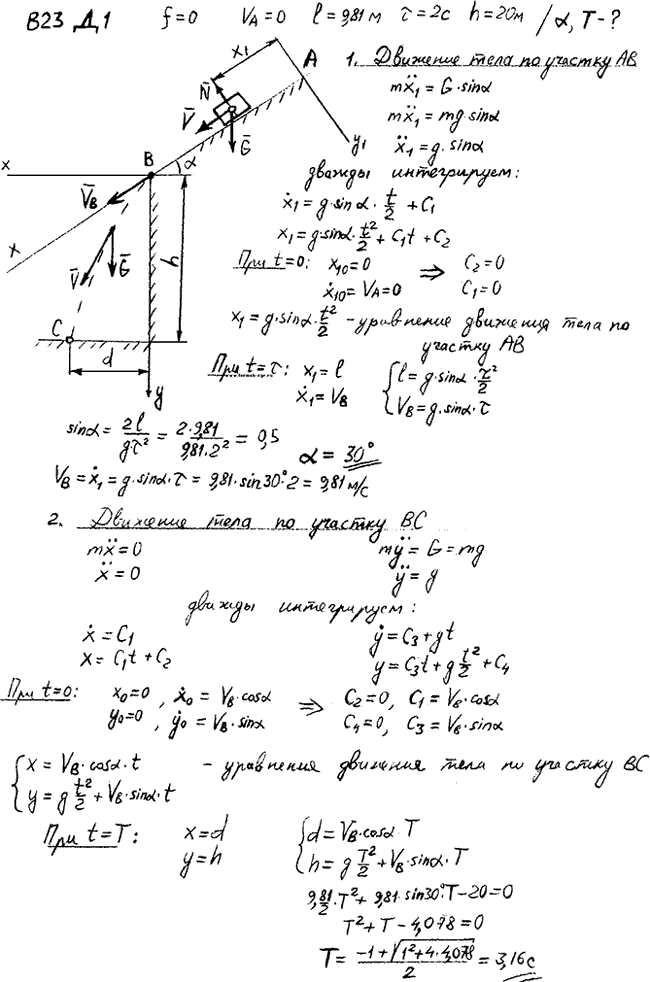 B23 Д1 f=0 V_A=0 l=9,81м τ=2c h=20м / α, T-?
1. Движение тела по участку AB
mẍ₁ = G·sinα
mẍ₁ = mg·sinα
ẍ₁ = g·sinα
дважды интегрируем:
ẋ₁ = g·sinα·t/2 + C₁
x₁ = g·sinα·t²/2 + C₁t + C₂
При t=0: x₁₀=0 ⇒ C₂=0
ẋ₁₀=V_A=0 C₁=0
x₁ = g·sinα·t²/2 - уравнение движения тела по
участку AB
При t=τ: x₁=l { l=g·sinα·τ²/2
ẋ₁=V_B V_B=g·sinα·τ
x₁
A
N̄
V̄
Ḡ
y₁
x
B
α
V̄_B
x
V̄
Ḡ
h
C
d
y
sinα = 2l/gτ² = 2·9,81/9,81·2² = 0,5 α = 30°
V_B = ẋ₁ = g·sinα·τ = 9,81·sin30°·2 = 9,81 м/c
2. Движение тела по участку BC
mẍ=0 mÿ=G=mg
ẍ=0 ÿ=g
дважды интегрируем:
ẋ=C₁ ẏ=C₃+gt
x=C₁t+C₂ y=C₃t+g t²/2+C₄
При t=0: x₀=0, ẋ₀=V_B·cosα ⇒ C₂=0, C₁=V_B·cosα
y₀=0, ẏ₀=V_B·sinα C₄=0, C₃=V_B·sinα
{ x=V_B·cosα·t - уравнения движения тела по участку BC
y=g t²/2+V_B·sinα·t
При t=T: x=d { d=V_B·cosα·T
y=h h=g T²/2+V_B·sinα·T
9,81/2·T²+9,81·sin30°·T-20=0
T²+T-4,078=0
T= -1+√(1²+4·4,078)/2 = 3,16c